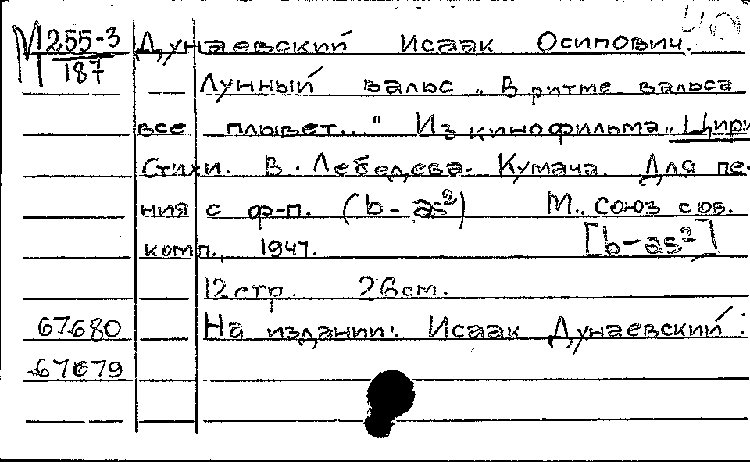 М 255-3 Дунаевский Исаак Осипович.
187
Лунный вальс „В ритме вальса
все плывет..." Из кинофильма „Цирк
Стихи. В. Лебедева-Кумача. Для пе-
ния с ф-п. (b-as²) М., Союз сов.
комп., 1947. [b-as²]
12 стр. 26 см.
67680 На издании: Исаак Дунаевский.
67679